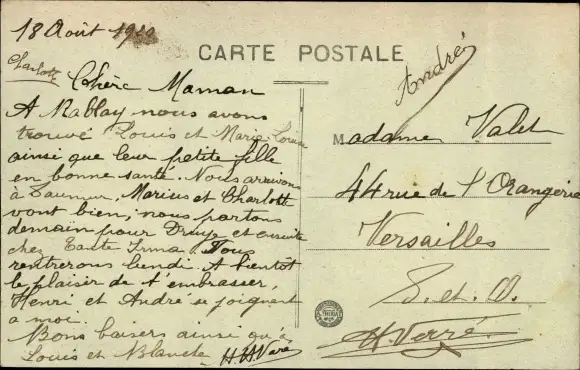 18 Août 19
CARTE POSTALE
Charlotte
André
Chère Maman
A Rablay nous avons
trouvé Louis et Marie Louise
ainsi que leur petite fille
en bonne santé. Nous arrivons
à Saumur, Marius et Charlotte
vont bien; nous partons
demain pour et ensuite
chez Tante Irma. Nous
rentrerons lundi. A bientôt
le plaisir de t'embrasser,
Henri et André se joignent
a moi.
Bons baisers ainsi qu'à
Louis et Blanche
Madame Valet
44 rue de l'Orangerie
Versailles
S. et O.
H. Verré